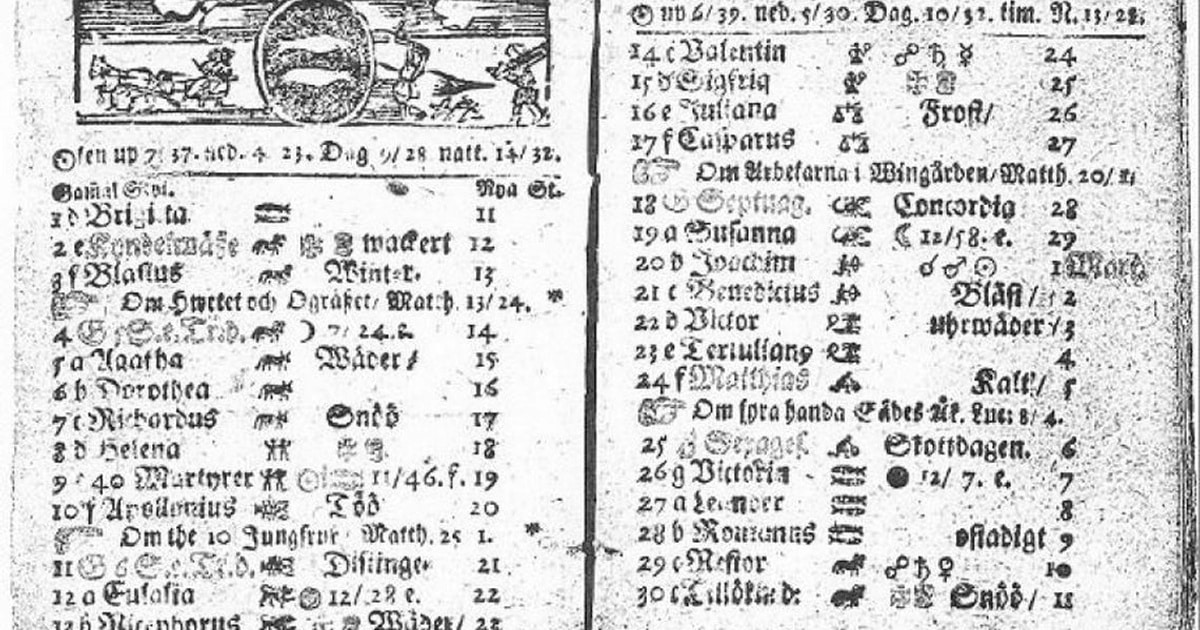 Solen up 7/37. ned. 4 23. Dag 9/28 natt. 14/32.
Gamal Styl. Nya St.
1 d Brigitta 11
2 e Kyndelmässe wackert 12
3 f Blasius Winter. 13
Om Hwetet och Ogräset/ Matth. 13/24.
4 G 5 S. e. Tr. d. ☽ 7/24. 14
5 a Agatha Wäder/ 15
6 b Dorothea 16
7 c Richardus Snöö 17
8 d Helena 18
9 e 40 Martyrer 11/46. f. 19
10 f Apollonius Töö 20
Om the 10 Jungfrur Matth. 25 1.
11 G 6 S. e. Tr. d. Distinge 21
12 a Eulalia 12/28 e. 22
13 b Nicephorus Wäder/ 23
☉ up 6/39. ned. 5/30. Dag. 10/32. tim. N. 13/28.
14 c Valentin ☍ ♄ ☿ 24
15 d Sigfrid 25
16 e Juliana Frost/ 26
17 f Casparus 27
Om Arbetarna i Wingården/ Matth. 20/1.
18 G Septuag. Concordia 28
19 a Susanna ☾ 12/58. e. 29
20 b Joachim ☌ ♂ ☉ 1 Mart.
21 c Benedictus Bläst/ 2
22 d Victor uhrwäder/ 3
23 e Tertullian9 4
24 f Matthias Kalt/ 5
Om fyra handa Sädes Åk. Luc: 8/4.
25 G Sexages. Skottdagen. 6
26 g Victoria ● 12/7. e. 7
27 a Leander 8
28 b Romanus ostadigt 9
29 c Nestor ☍ ♄ ♀ 10
30 Snöö/ 11